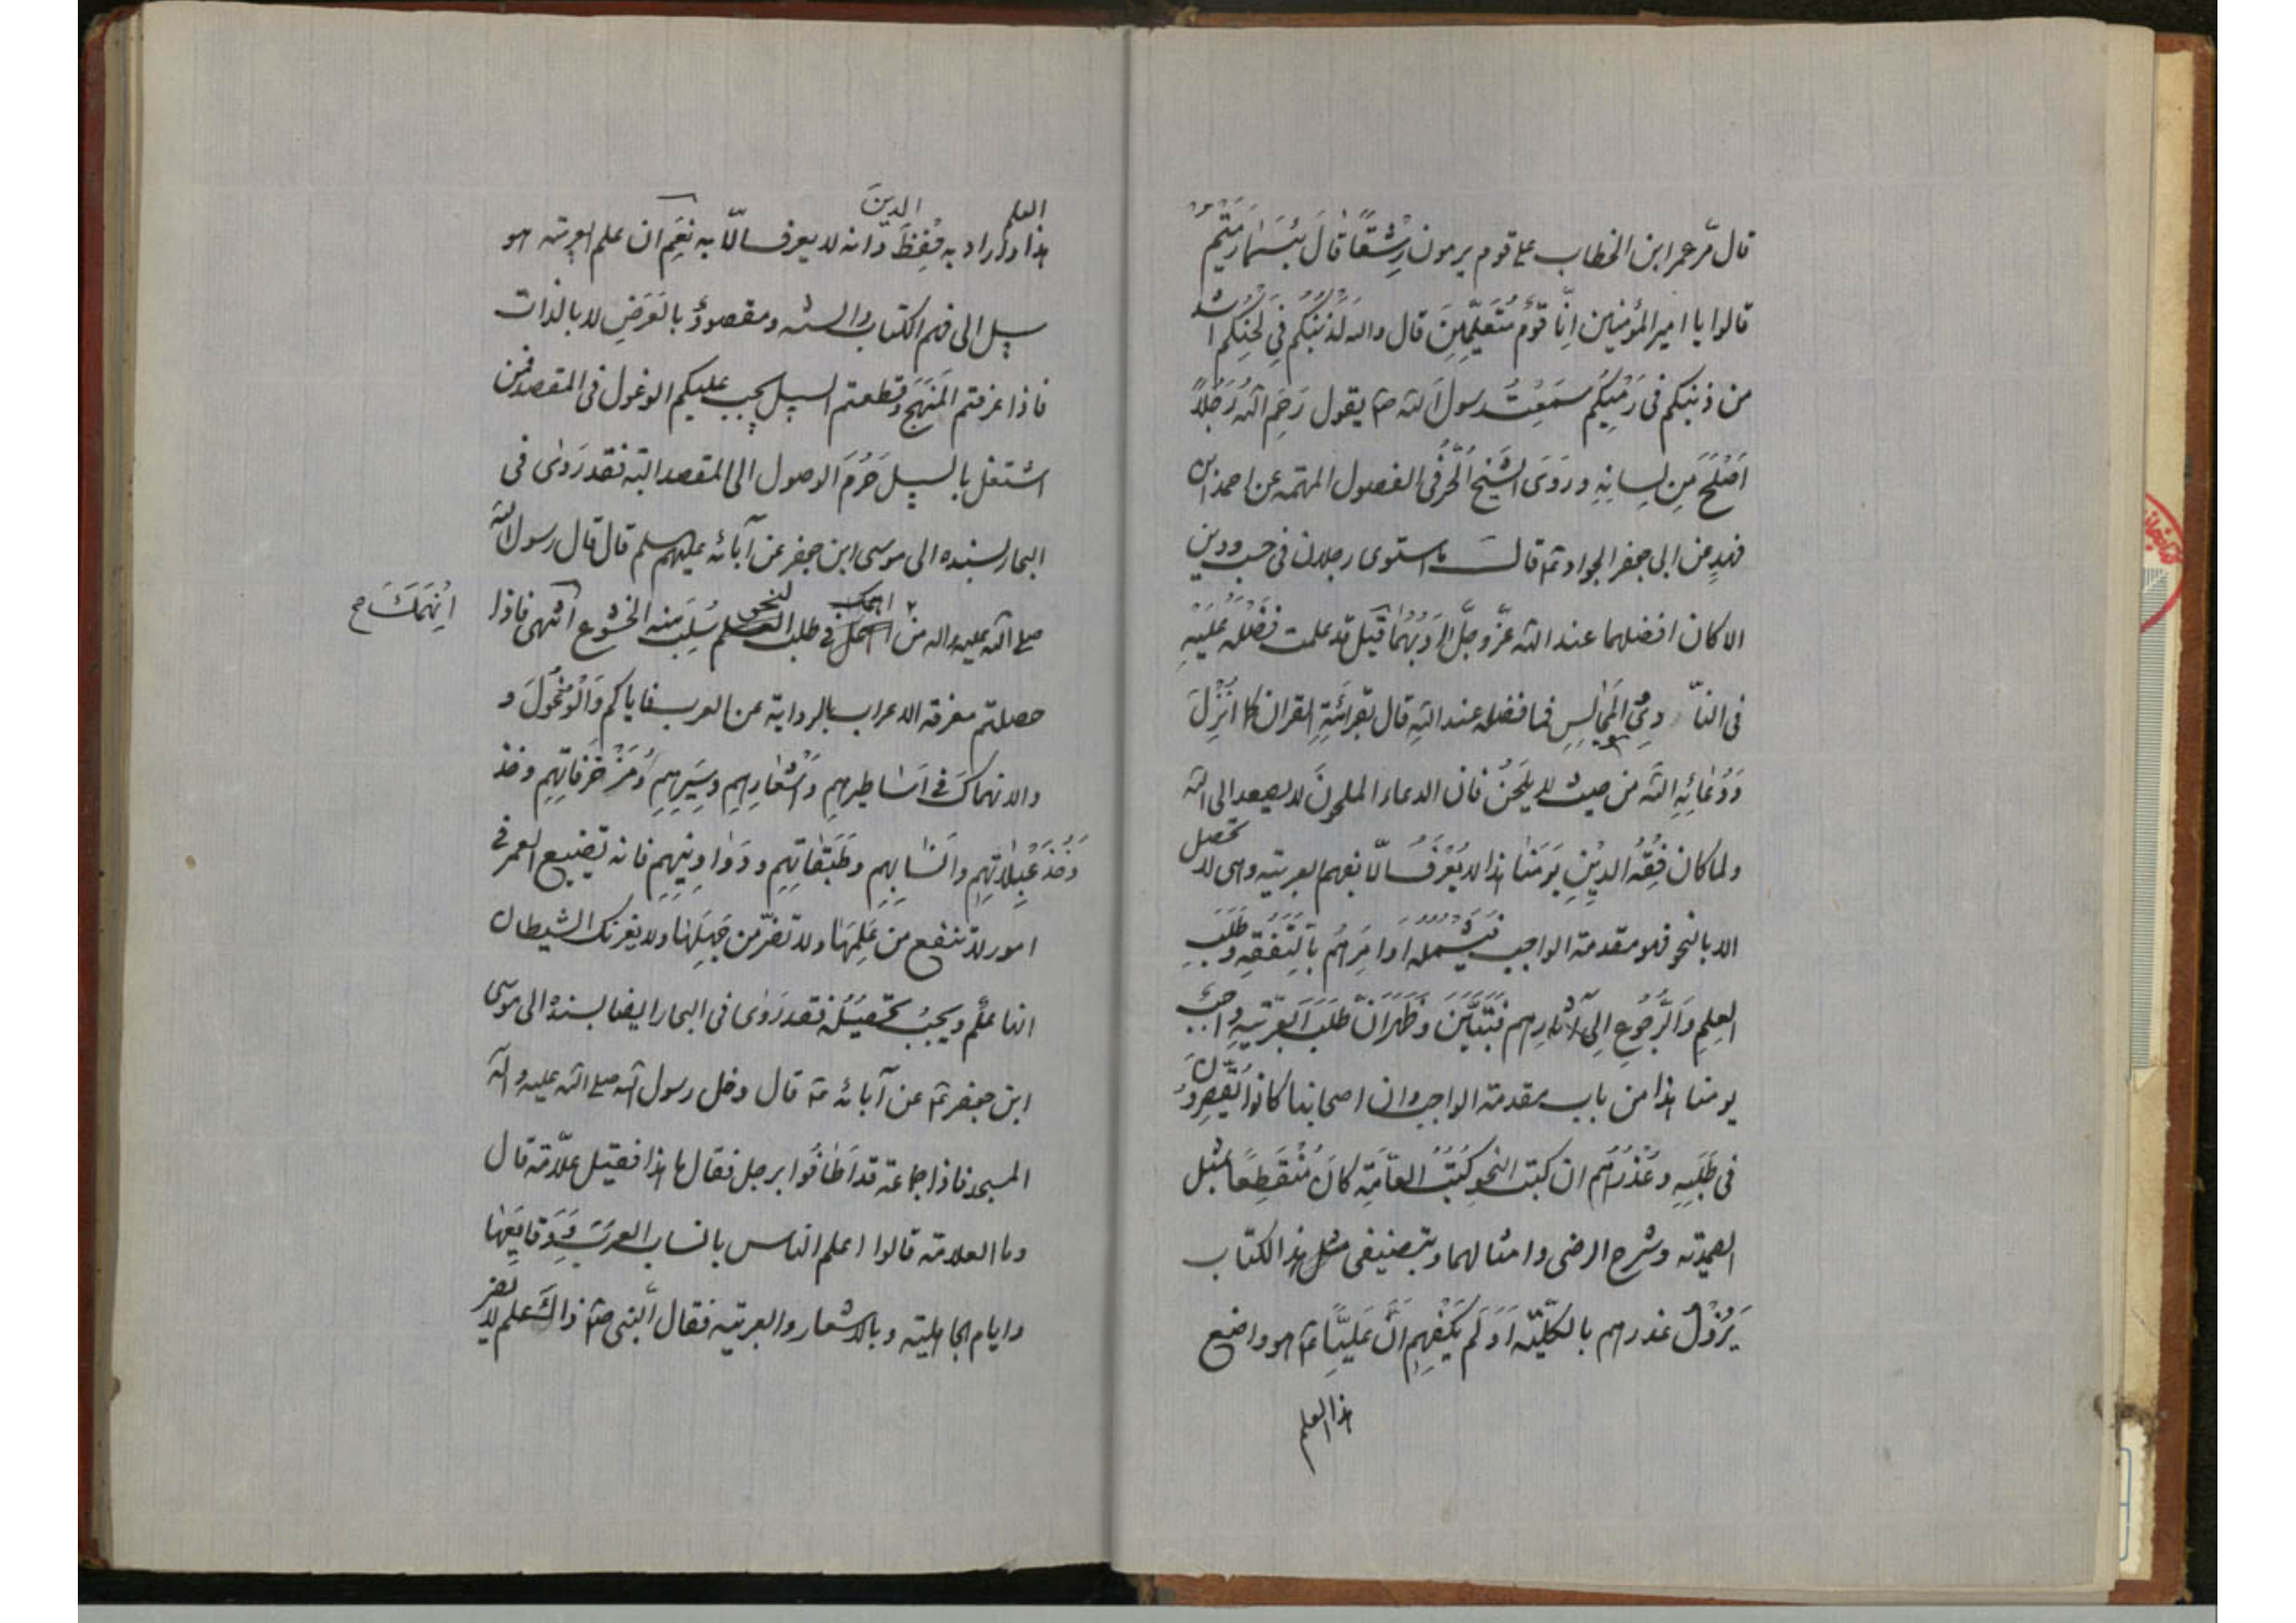 قال مرّ عمر ابن الخطاب على قوم يرمون رشقًا قال بئسما رميتم
قالوا يا امير المؤمنين انّا قوم متعلّمين قال والله لذنبكم في لحنكم اشد
من ذنبكم في رميكم سمعت رسول الله ص يقول رحم الله رجلاً
اصلح من لسانه وروى الشيخ الحرّ في الفصول المهمه عن احمد ابن
فهد عن ابي جعفر الجواد ع قال ما استوى رجلان في حسب ودين
الا كان افضلهما عند الله عزّ وجلّ ادبهما قيل قد علمت فضله عليه
في النا دي المجالس فما فضله عند الله قال بقرائة القران كما انزل
ودعائه الله من حيث لا يلحن فان الدعاء الملحون لا يصعد الى الله
ولما كان فقه الدين يومنا هذا لا يعرف الّا بفهم العربيه وهى لا تحصل
الا بالنحو فهو مقدمة الواجب فيشمله اوامرهم بالتفقه وطلب
العلم والرجوع الى آثارهم فتبيّن وظهر انّ طلب العربيه واجب
يومنا هذا من باب مقدمة الواجب وان اصحابنا كانوا يقصرون
في طلبه وعذرهم ان كتب النحو كتب العامّه كان منقطعًا بمثل
الصمديّه وشرح الرضى وامثالهما وبتصنيفى مثل هذا الكتاب
يزول عذرهم بالكلّيّه اولم يكفهم انّ عليًّا ع هو واضع
هذا العلم
هذا العلم واراد به حفظ الدين وانه لا يعرف الّا به نعم ان علم العربيه هو
سبيل الى فهم الكتاب والسنه ومقصود بالعرض لا بالذات
فاذا عرفتم المنهج وقطعتم السبيل يجب عليكم الوغول في المقصد فمن
اشتغل بالسبيل حرم الوصول الى المقصد البته فقد روى في
البحار بسنده الى موسى ابن جعفر عن آبائه عليهم السلم قال قال رسول الله
صلى الله عليه واله من انهمك في طلب النحو سلب منه الخشوع انتهى فاذا
اِنْهَمَكَ صح
حصلتم معرفة الاعراب بالرواية عن العرب فاياكم والوغول و
والانهماك في اساطيرهم واشعارهم وسيرهم ومزخرفاتهم وخذ
وخذعبلاتهم وانسابهم وطبقاتهم ودواوينهم فانه تضييع العمر في
امور لا تنفع من علمها ولا تضرّ من جهلها ولا يغرنك الشيطان
انها علم ويجب تحصيله فقد روى في البحار ايضا بسنده الى موسى
ابن جعفر ع عن آبائه ع قال دخل رسول الله صلى الله عليه واله
المسجد فاذا جماعة قد اطافوا برجل فقال ما هذا فقيل علّامة قال
وما العلامة قالوا اعلم الناس بانساب العرب ووقايعها
وايام الجاهلية وبالاشعار والعربيّه فقال النبى ص ذاك علم لا يضر